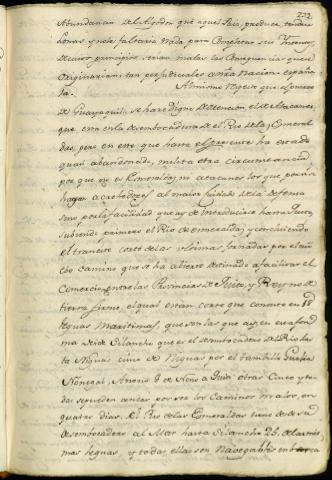 222
Abundancia del Algodon que aquel Pais produce tendra
honras y no le faltaria nada para completar su
de cuios principios serian malas las consequencias que se
originarian tan perjudiciales a nra Nacion españo
la.
Almismo respecto que el puerto
de Guayaquil se hace digno de atencion el de Atacames,
que esta en la desembocadura de el Rio de las Esmeral
das, pero en este que hasta el presente ha estado
quasi abandonado, milita otra circunstancia,
por que ni es Esmeraldas, ni atacames los que podrian
hagan acrehedores al maior cuidado de la defensa
sino por la facilidad que ay de introducirse hasta Quito,
subiendo primero el Rio de esmeraldas, y concluiendo
el transito corto de las ultimas, jornadas por el nue
bo camino que se ha abierto destinado a facilitar el
Comercio, entre las Provincias de Quito, y Reyno de
tierra firme, el qual estan corto que consiste en 18
leguas Maritimas, que son las que ay en
de Silanche que es el desembarcadero del Rio has
ta Niguas cinco de Niguas por el tambillo
Nonegal, otras Cinco y to
das se pueden andar por ser los Caminos malos, en
quatro dias. El Rio de las Esmeraldas tiene de de su
desembocadero al Mar hasta Silanche 25. de las mis
mas leguas, y todas ellas son Navegables